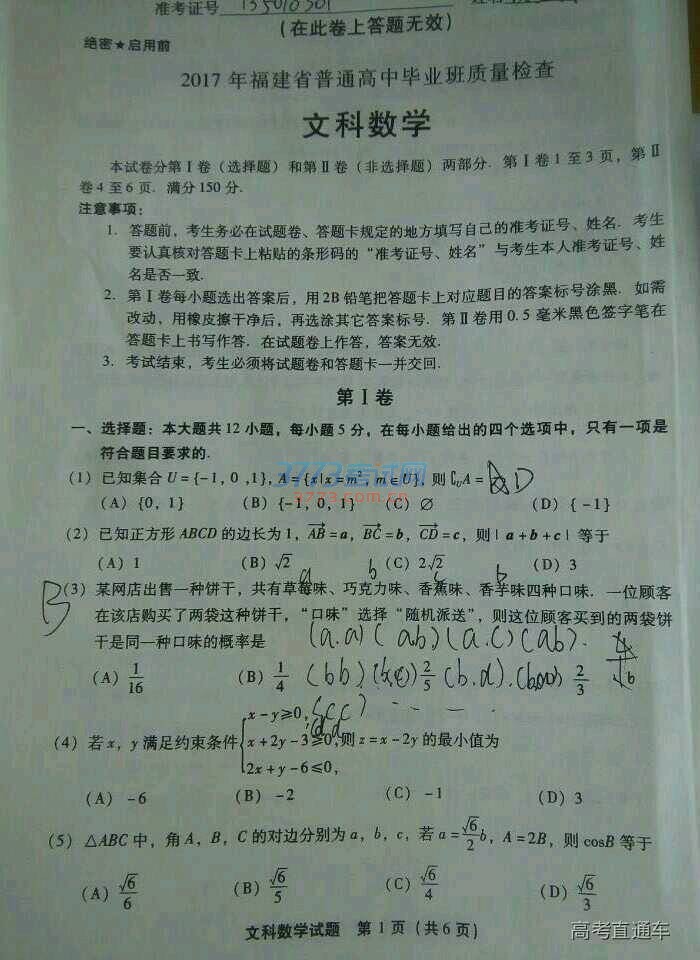 准考证号 135010301
(在此卷上答题无效)
绝密★启用前
2017 年福建省普通高中毕业班质量检查
文科数学
本试卷分第Ⅰ卷（选择题）和第Ⅱ卷（非选择题）两部分．第Ⅰ卷 1 至 3 页，第Ⅱ
卷 4 至 6 页．满分 150 分．
注意事项：
1. 答题前，考生务必在试题卷、答题卡规定的地方填写自己的准考证号、姓名．考生
要认真核对答题卡上粘贴的条形码的“准考证号、姓名”与考生本人准考证号、姓
名是否一致．
2. 第Ⅰ卷每小题选出答案后，用 2B 铅笔把答题卡上对应题目的答案标号涂黑．如需
改动，用橡皮擦干净后，再选涂其它答案标号．第Ⅱ卷用 0.5 毫米黑色签字笔在
答题卡上书写作答．在试题卷上作答，答案无效．
3. 考试结束，考生必须将试题卷和答题卡一并交回．
第Ⅰ卷
一、选择题：本大题共 12 小题，每小题 5 分，在每小题给出的四个选项中，只有一项是
符合题目要求的．
(1) 已知集合 U={-1，0，1}，A={x|x=m²，m∈U}，则 ∁UA= D
3773考试网
3773.com.cn
(A) {0，1} (B) {-1，0，1} (C) ∅ (D) {-1}
(2) 已知正方形 ABCD 的边长为 1，AB=a，BC=b，CD=c，则|a+b+c|等于
(A) 1 (B) √2 (C) 2√2 (D) 3
a b c b
B (3) 某网店出售一种饼干，共有草莓味、巧克力味、香蕉味、香芋味四种口味．一位顾客
在该店购买了两袋这种饼干，“口味”选择“随机派送”，则这位顾客买到的两袋饼
干是同一种口味的概率是 (a.a) (ab) (a.c) (ab).
(A) 1/16 (B) 1/4 (bb) (b,c) 2/5 (b.d). 2/3
(cc)
dd
(4) 若 x，y 满足约束条件 {x-y≥0，x+2y-3≥0，2x+y-6≤0，则 z=x-2y 的最小值为
(A) -6 (B) -2 (C) -1 (D) 3
(5) △ABC 中，角 A，B，C 的对边分别为 a，b，c，若 a=√6/2 b，A=2B，则 cosB 等于
(A) √6/6 (B) √6/5 (C) √6/4 (D) √6/3
文科数学试题 第 1 页（共 6 页）
高考直通车